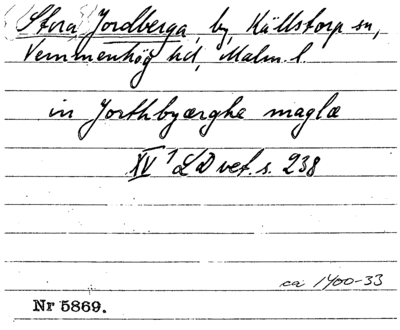 (Stora) Jordberga, by, Källstorp sn,
Vemmenhög hd, Malm. l.
in Jorthbyærghe maglæ
XV 1 LD vet. s. 238
ca 1400-33
Nr 5869.